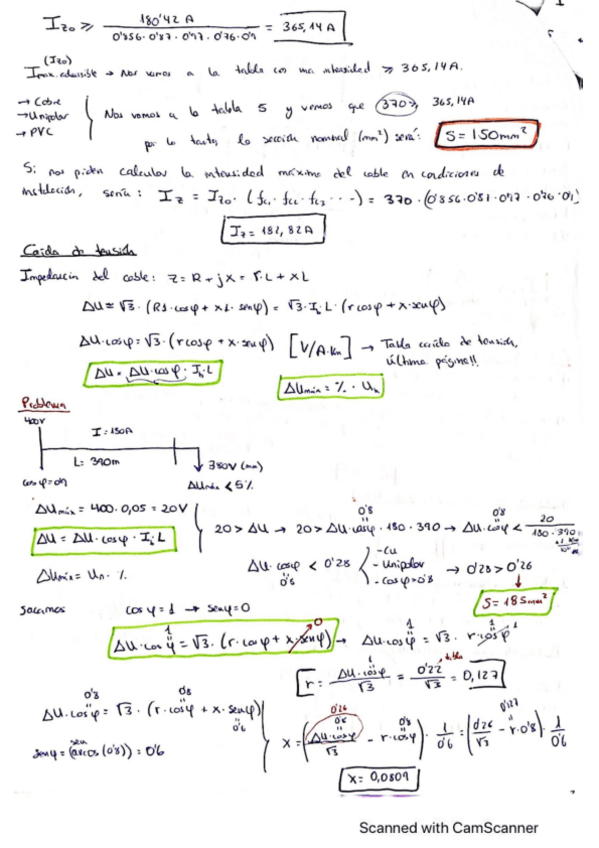 I_zo ≥ 180'42 A / 0'856·0'87·0'77·0'76·0'9 = 365,14 A
(Izo)
Imax.admisible → Nos vamos a la tabla con una intensidad ≥ 365,14A.
→ Cobre
→ Unipolar
→ PVC
Nos vamos a la tabla 5 y vemos que 370 > 365,14A
por lo tanto, la sección nominal (mm²) será: S = 150mm²
Si nos piden calcular la intensidad máxima del cable en condiciones de
instalación, sería: Iz = Izo · (fc1 · fc2 · fc3 ···) = 370 · (0'856·0'87·0'77·0'76·0'9)
Iz = 182,82A
Caída de tensión
Impedancia del cable: Z = R + jX = r·L + xL
ΔU ≈ √3 · (RI·cosφ + xI·senφ) = √3·I_b·L·(r cosφ + x·senφ)
ΔU·cosφ = √3·(r cosφ + x·senφ) [V/A·Km] → Tabla caída de tensión,
última página!!
ΔU = ΔU·cosφ · I_b·L
ΔUmáx = % · Un
Problema
400V
I = 180A
L = 390m
380V (min)
cosφ = 0'8
ΔUmáx < 5%
ΔUmáx = 400·0,05 = 20V
20 > ΔU → 20 > ΔU·cosφ · 180 · 390 → ΔU·cosφ < 20 / 180·390
0'8
0'8
ΔU = ΔU·cosφ · I_b·L
ΔU·cosφ < 0'28
0'8
-Cu
-Unipolar
-cosφ=0'8
→ 0'28 > 0'26
ΔUmáx = Un · %
S = 185mm²
Sacamos cosφ = 1 → senφ = 0
ΔU·cosφ = √3 · (r·cosφ + x·senφ) → ΔU·cosφ = √3 · r·cosφ
1
0
1
1
r = ΔU·cosφ / √3 = 0'22 / √3 = 0,127
tabla
ΔU·cosφ = √3 · (r·cosφ + x·senφ)
0'8
0'8
0'6
senφ = (sen(arcos(0'8))) = 0'6
x = (ΔU·cosφ / √3 - r·cosφ) · 1/0'6 = (0'26/√3 - r·0'8) · 1/0'6
0'26
0'8
0'127
x = 0,0809
Scanned with CamScanner